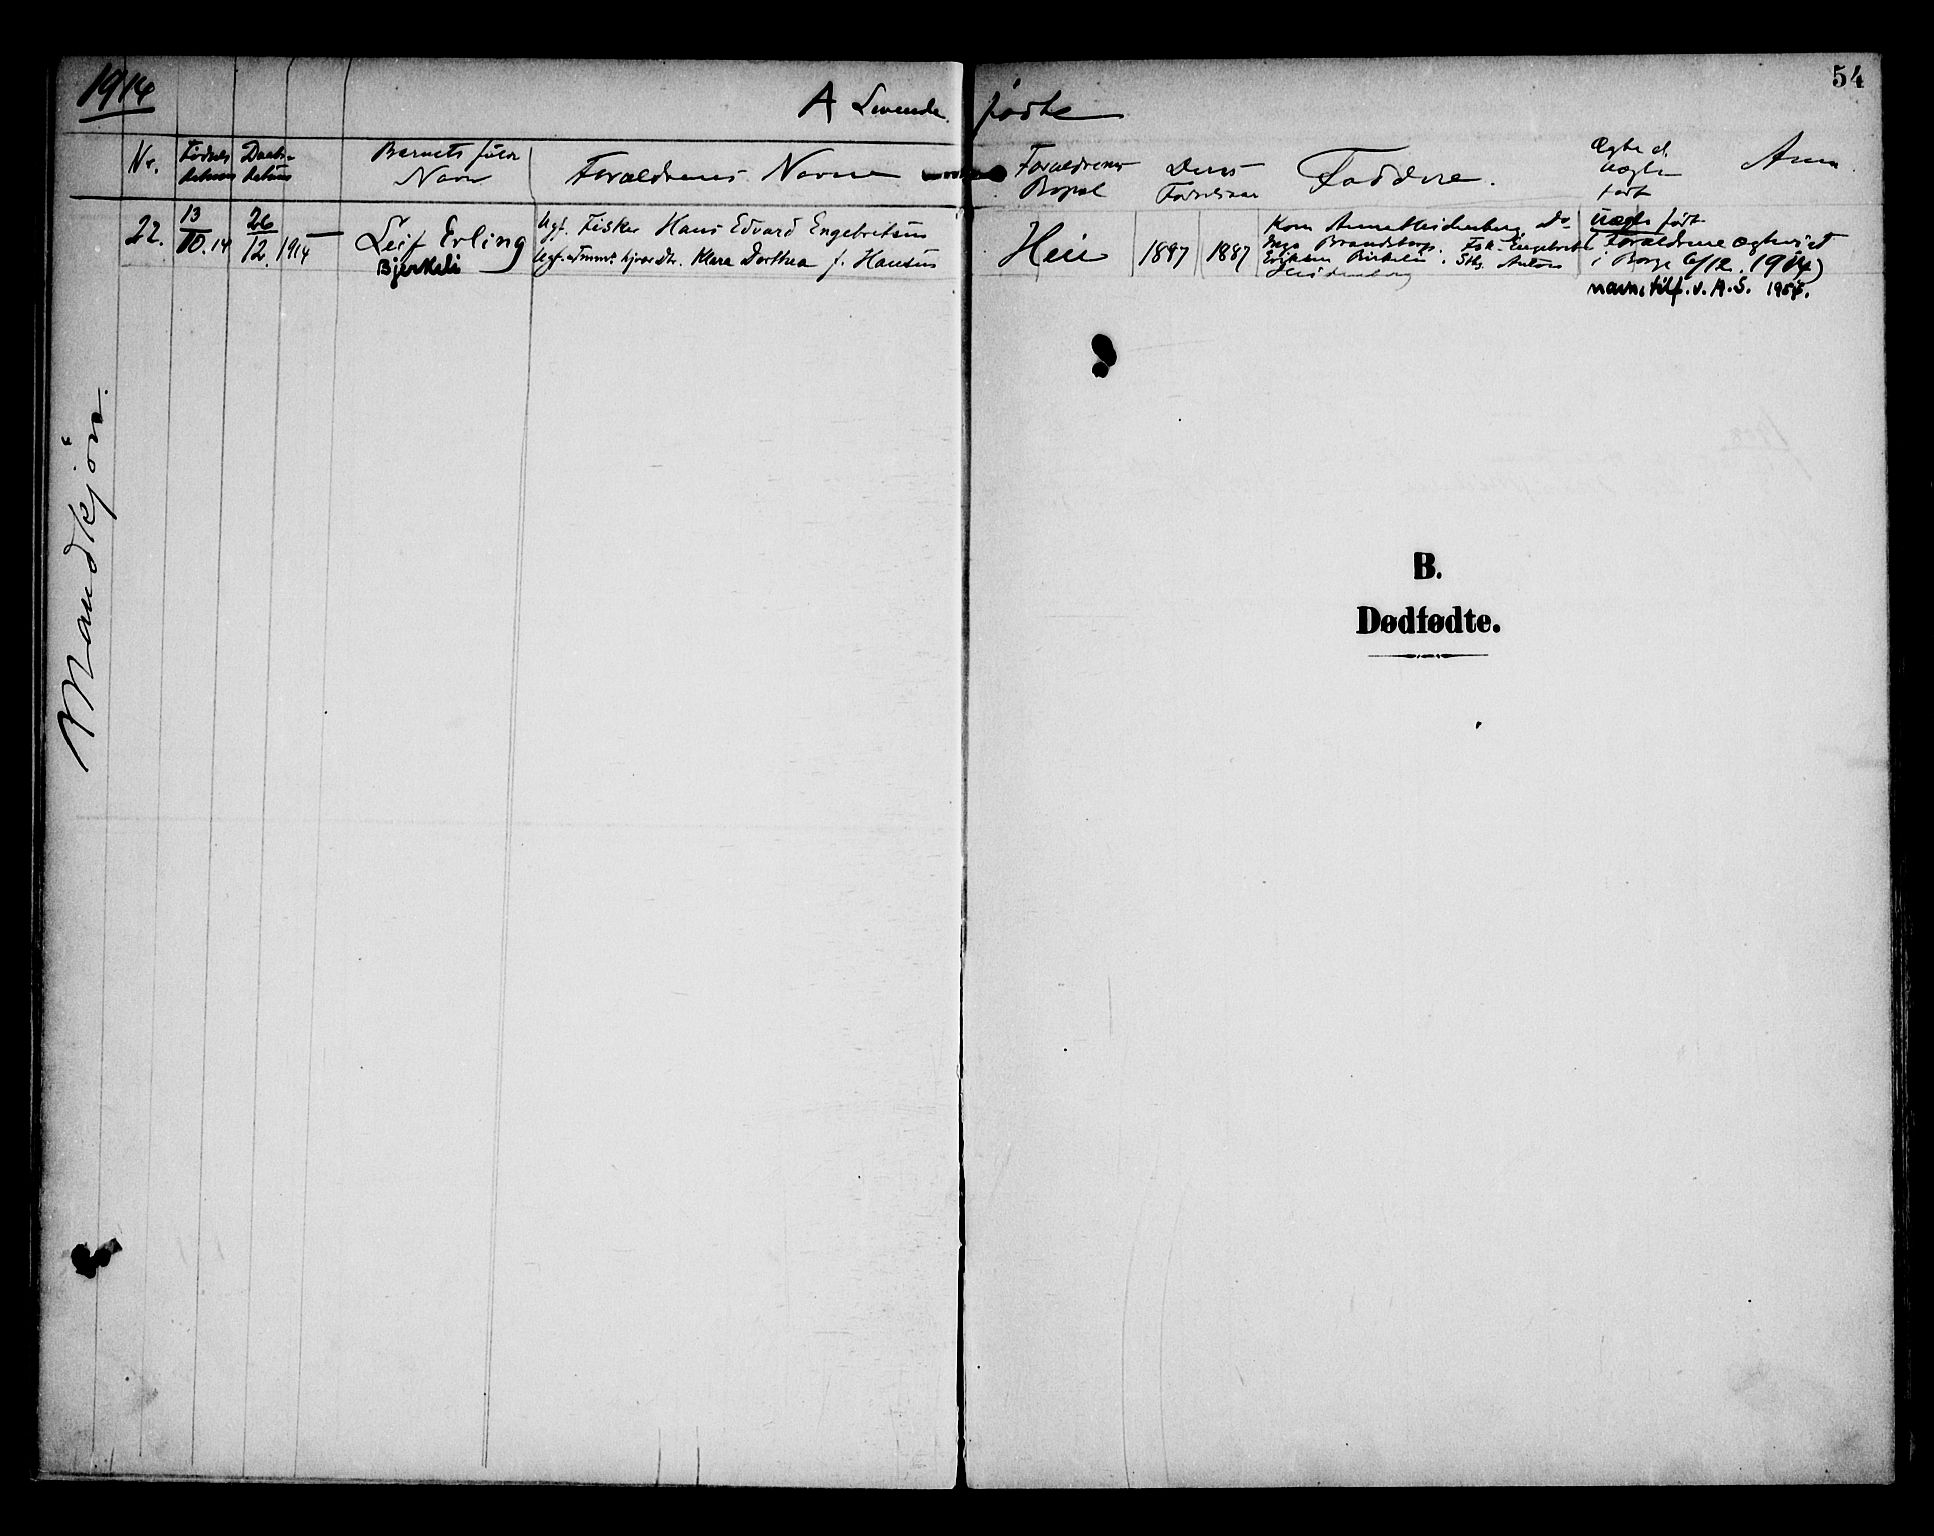 1914
A Levende fødte
54
Nr. Fødsels datum Daabs- datum Barnets fulde Navn Forældrenes Navne Forældrenes Bopæl Deres Fødselsaar Faddere. Ægte el. uægte født Anm
22. 13/10.14 26/12.1914 — Leif Erling Bjerkeli
Ugf. Fisker Hans Edvard Engebretsen
Ugf. Klara Dorthea f. Hansen
Heie 1887 1887
Kone Anna
Brandstorp. Fisk. Engebret
Anton
Uægte født
(Forældrene ægteviet
i Borge 6/12.1914)
navn, tilf. v. A.S. 1954.
Mandkjøn.
B.
Dødfødte.